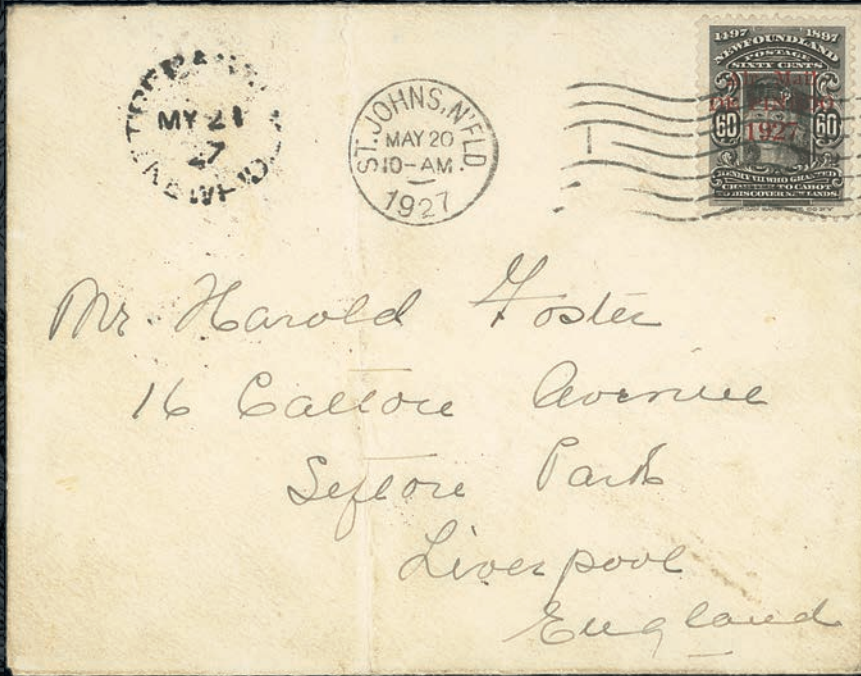 MY 21
27
ST. JOHNS, N'FLD.
MAY 20
10-AM
1927
1497 1897
NEWFOUNDLAND
POSTAGE
SIXTY CENTS
Air Mail
DE PINEDO
1927
60 60
HENRY VII WHO GRANTED
CHARTER TO CABOT
TO DISCOVER NEW LANDS.
Mr. Harold Foster
16 Calton Avenue
Sefton Park
Liverpool
England